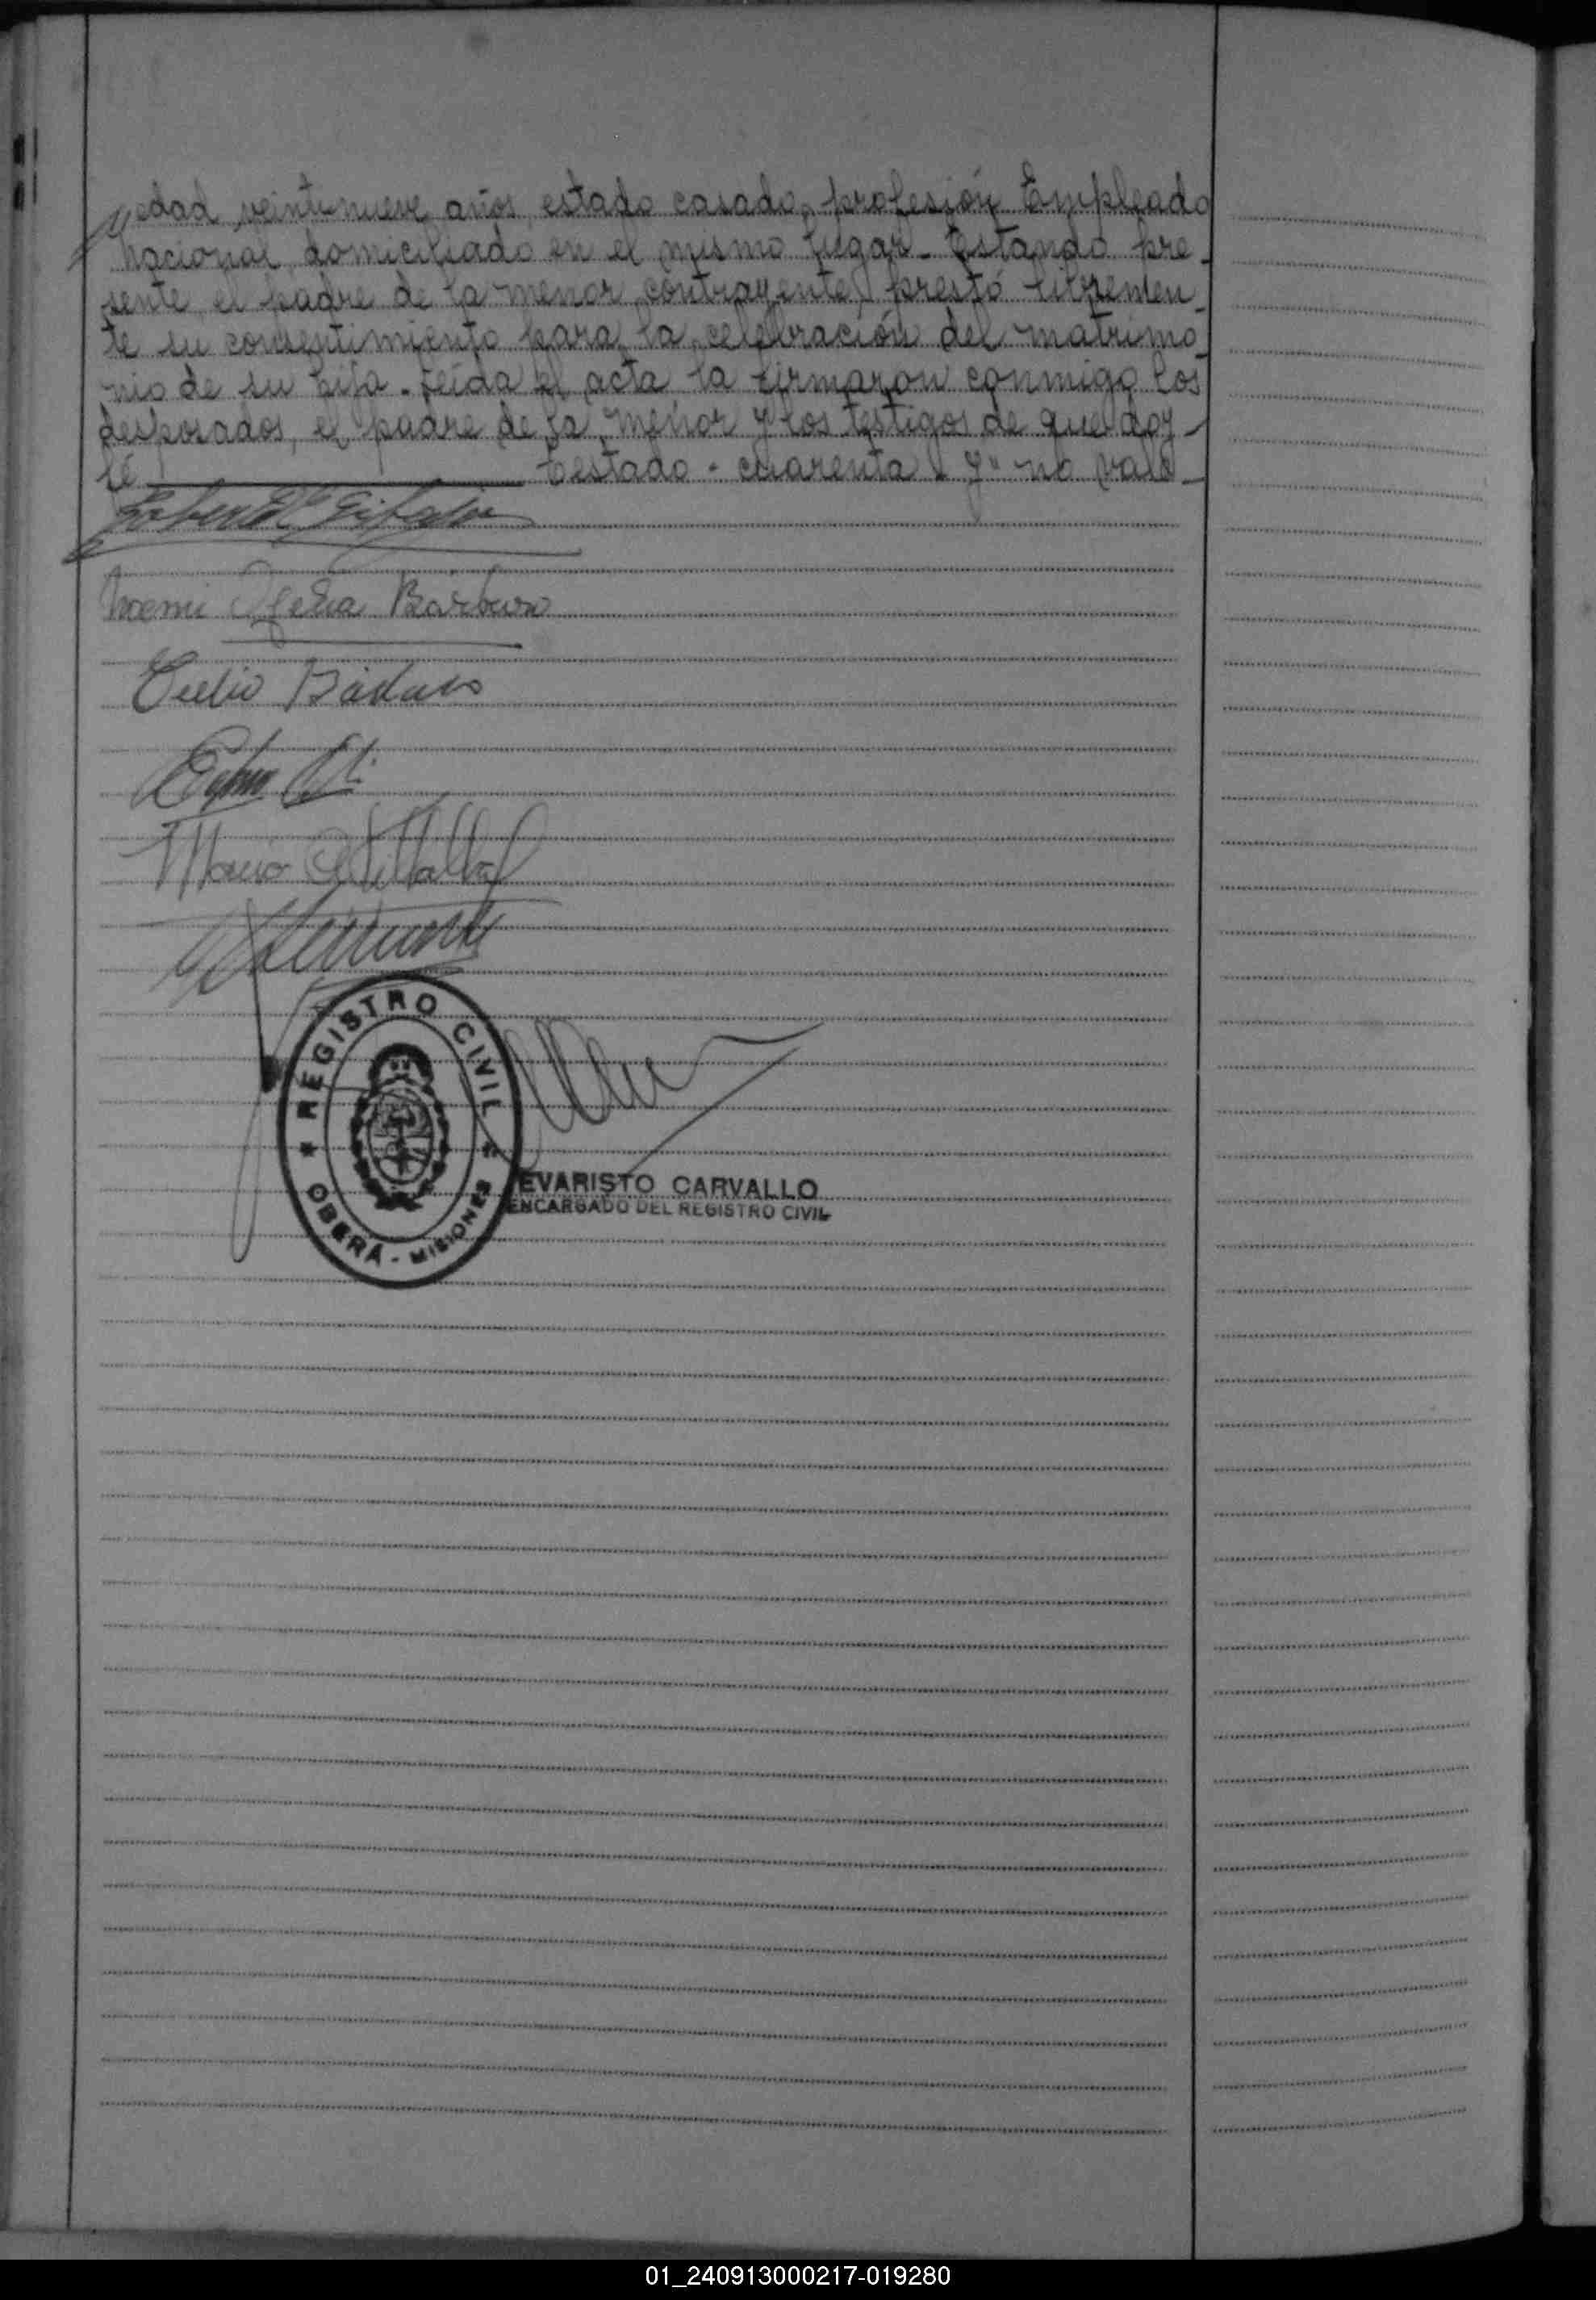 edad, veintinueve años, estado casado, profesión Empleado
Nacional, domiciliado en el mismo lugar - Estando pre-
sente el padre de la menor contrayente, prestó libremen-
te su consentimiento para la celebración del matrimo-
nio de su hija - Leída el acta, la firmaron conmigo los
desposados, el padre de la menor y los testigos de que doy
fé Testado - cuarenta y" no vale
Noemi Ofelia
Mario Villalba
REGISTRO CIVIL
OBERÁ - MISIONES
EVARISTO CARVALLO
ENCARGADO DEL REGISTRO CIVIL
01_240913000217-019280